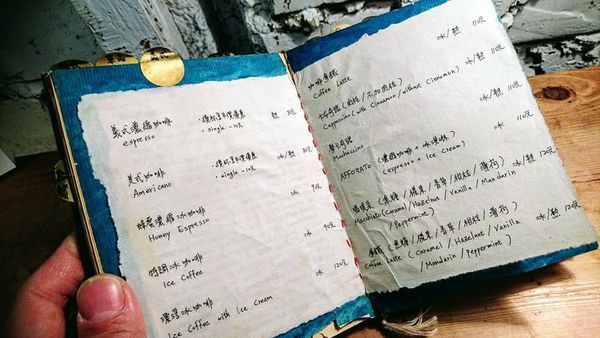 義式濃縮咖啡
espresso
熱
• single -10元
美式咖啡
Americano
冰/熱
• single -10元
蜂蜜濃縮冰咖啡
Honey Espresso
冰
冰咖啡
Ice Coffee
冰 90元
冰咖啡
Ice Coffee with Ice Cream
冰 120元
咖啡拿鐵
Coffee Latte
冰/熱 110元
卡布奇諾(肉桂/不加肉桂)
Cappuccino (with Cinnamon/without Cinnamon)
冰/熱 110元
摩卡奇諾
Mochaccino
冰/熱 110元
(濃縮咖啡+冰淇淋)
AFFORATO (espresso + Ice Cream)
冰 110元
瑪琪朵(焦糖/榛果/香草/柑桔/薄荷)
Machiato (Caramel/Hazelnut/Vanilla/Mandarin
/Peppermint)
冰/熱 120元
拿鐵(焦糖/榛果/香草/柑桔/薄荷)
Coffee Latte (Caramel/Hazelnut/Vanilla
/Mandarin/Peppermint)
冰/熱 120元